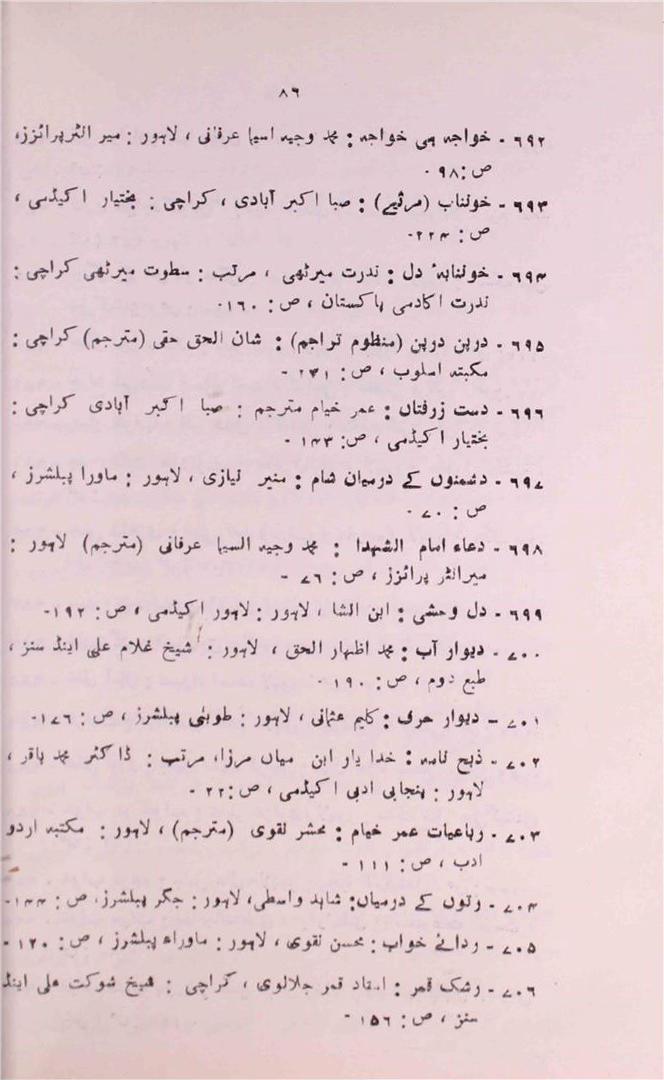 ۸۶
۶۹۲ - خواجہ ہی خواجہ : محمد وحید اسیما عرفانی ، لاہور : میر انٹرپرائزز،
ص : ۹۸ -
۶۹۳ - خونناب (مرثیے) : صبا اکبر آبادی ، کراچی : بختیار اکیڈمی ،
ص : ۲۲۴-
۶۹۴ - خوننابہٴ دل : ندرت میرٹھی ، مرتب : سطوت میرٹھی کراچی :
ندرت اکادمی پاکستان ، ص : ۱۶۰-
۶۹۵ - درپن درپن (منظوم تراجم) : شان الحق حقی (مترجم) کراچی :
مکتبہ اسلوب ، ص : ۲۳۱ -
۶۹۶ - دست زرفشاں : عمر خیام مترجم : صبا اکبر آبادی کراچی :
بختیار اکیڈمی ، ص: ۱۴۳ -
۶۹۷ - دشمنوں کے درمیان شام : منیر نیازی ، لاہور : ماورا پبلشرز ،
ص : ۷۰ -
۶۹۸ - دعاء امام الشہدا : محمد وحید السیما عرفانی (مترجم) لاہور :
میرانٹر پرائزز ، ص : ۷۶ -
۶۹۹ - دل وحشی : ابن انشا ، لاہور : لاہور اکیڈمی ، ص : ۱۹۲-
۷۰۰ - دیوار آب : محمد اظہار الحق ، لاہور : شیخ غلام علی اینڈ سنز ،
طبع دوم ، ص : ۱۹۰ -
۷۰۱ - دیوار حرف : کلیم عثمانی ، لاہور : طوبیٰ پبلشرز ، ص : ۱۷۶-
۷۰۲ - ذبح نامہ : خدا یار ابن میاں مرزا، مرتب : ڈاکٹر محمد باقر ،
لاہور : پنجابی ادبی اکیڈمی ، ص :۲۲ -
۷۰۳ - رباعیات عمر خیام : محشر نقوی (مترجم) ، لاہور : مکتبہ اردو
ادب ، ص : ۱۱۱ -
۷۰۴ - رتوں کے درمیاں: شاہد واسطی، لاہور : جگر پبلشرز، ص : ۱۴۴-
۷۰۵ - ردائے خواب : محسن نقوی ، لاہور : ماوراء پبلشرز ، ص : ۱۲۰ -
۷۰۶ - رشک قمر : استاد قمر جلالوی ، کراچی : شیخ شوکت علی اینڈ
سنز ، ص : ۱۵۶ -